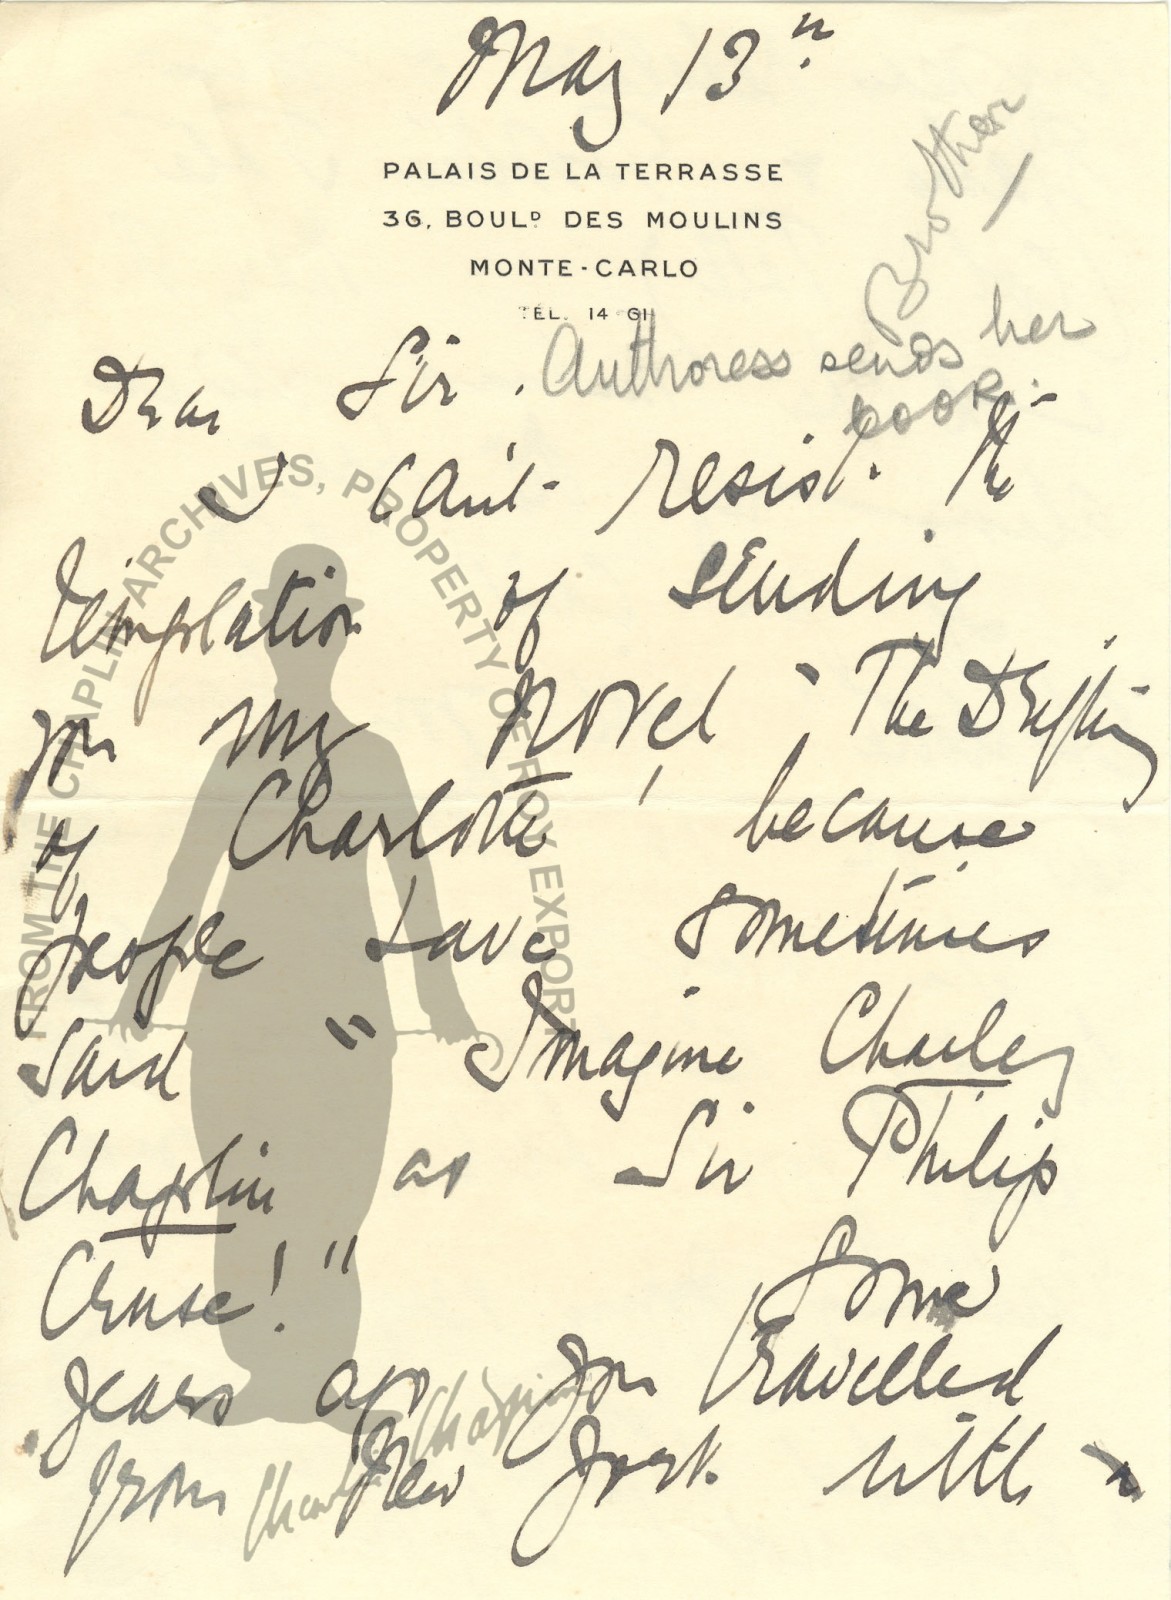 May 13th
PALAIS DE LA TERRASSE
36, BOULD DES MOULINS
MONTE-CARLO
TÉL. 14 61
Brother
Authoress sends her
book.
Dear Sir.
I can't resist the
temptation of sending
you my novel, "The Drifting
of Charlotte" because
people have sometimes
said "Imagine Charley
Chaplin as Sir Philip
Cruse!" Some
years ago you travelled
from New York with
Charlie Chaplin
FROM THE CHAPLIN ARCHIVES, PROPERTY OF ROY EXPORT